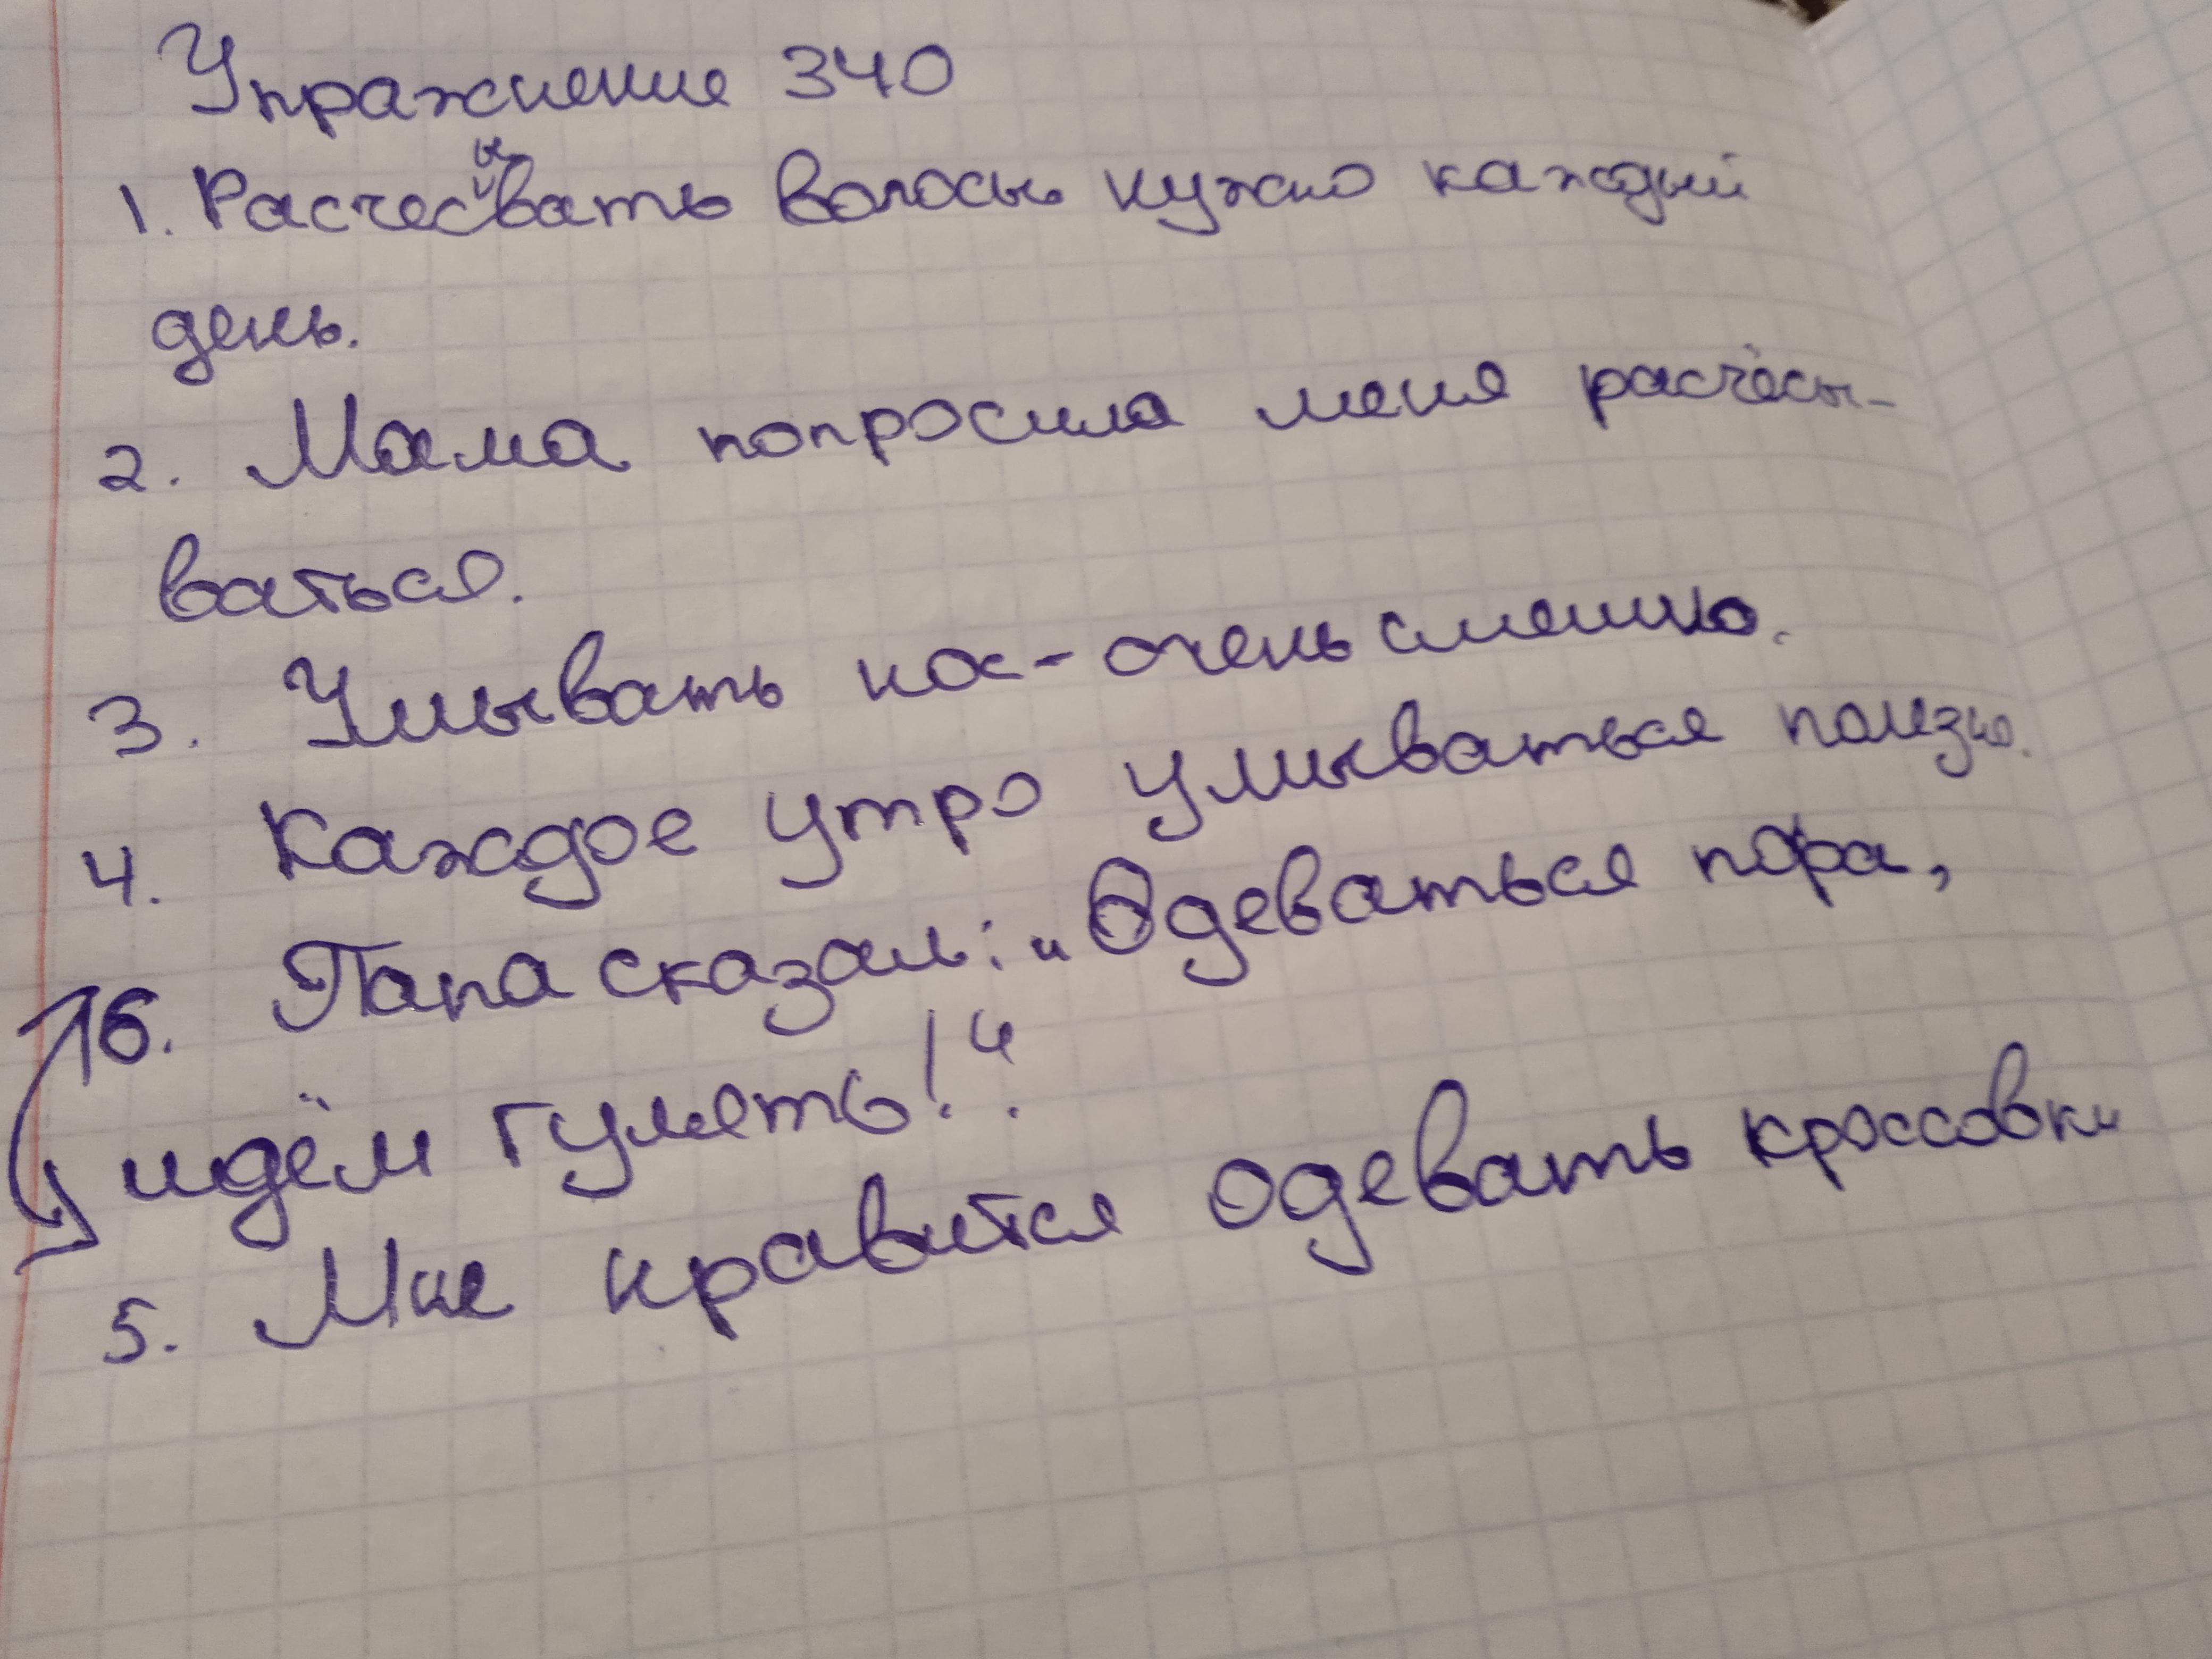 Упражнение 340
1. Расчесывать волосы нужно каждый
день.
2. Мама попросила меня расчёсы-
ваться.
3. Умывать нос - очень смешно.
4. Каждое утро умываться полезно.
6. Папа сказал: „Одеваться пора,
идём гулять!“.
5. Мне нравится одевать кроссовки